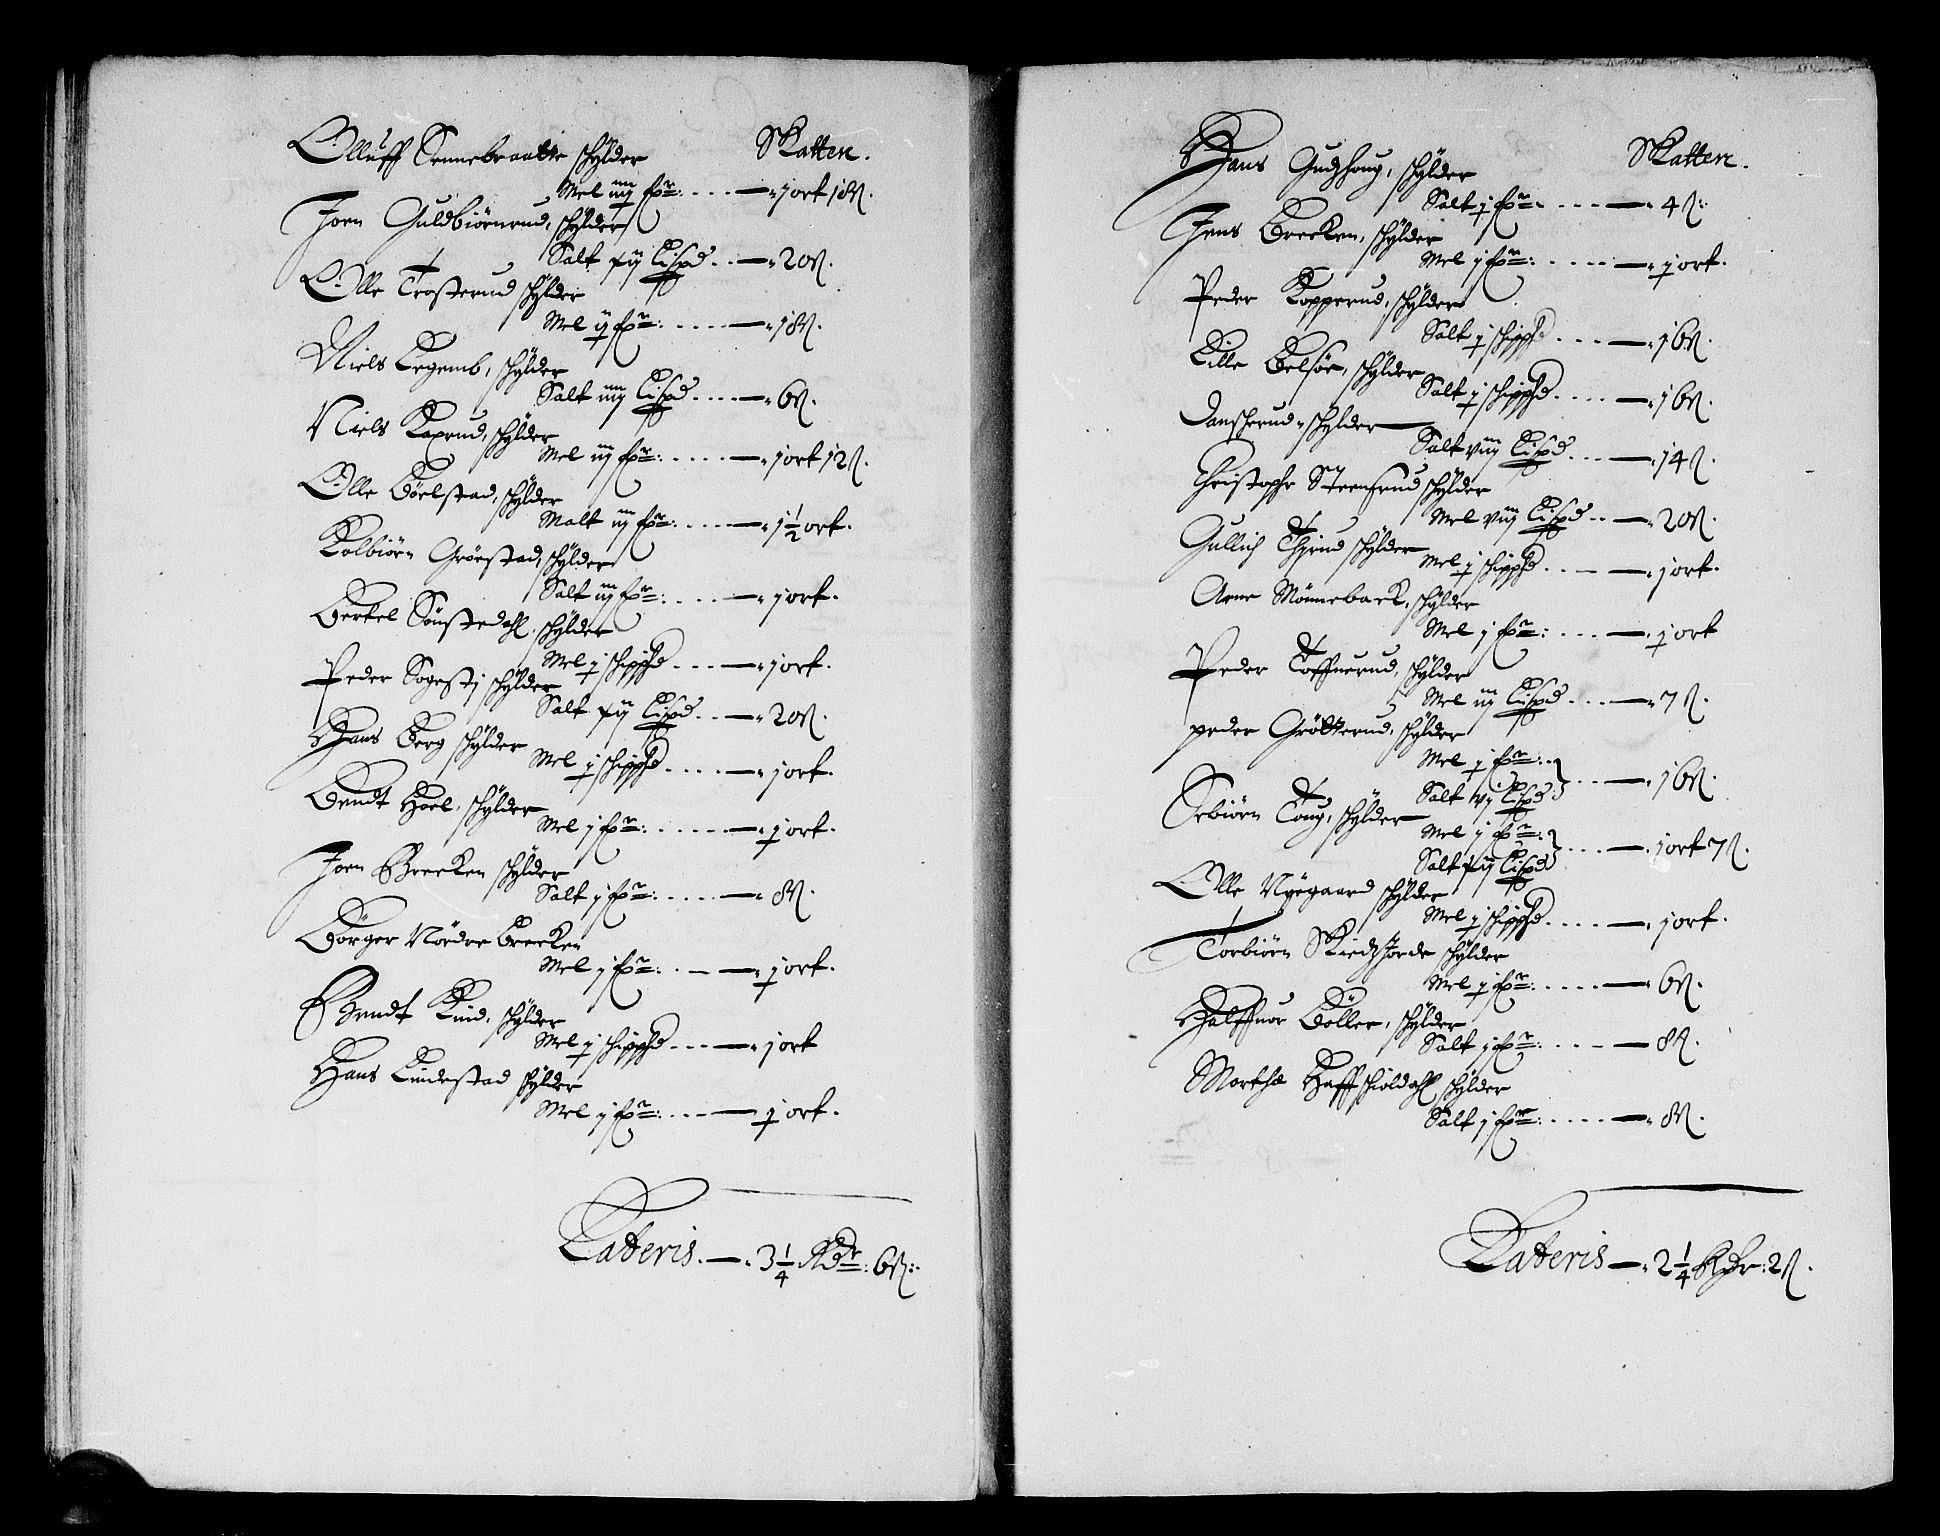 Olluff Sennebraatte schylder Skatten.
Mel iiij fr: .... — 1 ort 18 s.
Joen Guldbiörnrud, schylder
Salt xij Lispd .. — 20 s.
Olle Trosterud schylder
Mel ij fr: .... — 18 s.
Niels Legemb, schylder
Salt iiij Lispd .... — 6 s.
Niels Kaxrud, schylder
Mel iij fr: .... — 1 ort 12 s.
Olle Böelstad, schylder
Malt iij fr: .... — 1½ ort.
Kolbiörn Gröestad, schylder
Salt iij fr: .... — 1 ort.
Berkel Sönstedahl, schylder
Mel j schippd .... — 1 ort.
Peder Sogestj schylder
Salt xij Lispd .. — 20 s.
Hans Berg schylder
Mel j schippd .... — 1 ort.
Bendt Hoel, schylder
Mel j fr: ..... — 1 ort.
Joen Breeken schylder
Salt j fr: .... — 8 s.
Börger Nördre Breeken
Mel j fr: .. — 1 ort.
Bendt Lind, schylder
Mel j schippd ... — 1 ort
Hans Lindestad schylder
Mel j fr: ... — 1 ort.
Lateris. — 3¼ Rdr: 6 s:
Hans Gudzhoug, schylder Skatten.
Salt j fr: .... — 4 s:
Jens Breeken, schylder
Mel j fr: .... — 1 ort.
Peder Kopperud, schylder
Salt j schippd ... — 16 s.
Lille Belsöe, schylder
Salt j schippd .... — 16 s.
Danscherud schylder
Salt viij Lispd ... — 14 s.
Christopher Steensrud schylder
Mel viij Lispd .. — 20 s.
Gullich Thjrud schylder
Mel j schippd ... — 1 ort.
Arne Mönnebaek, schylder
Mel j fr: ... — 1 ort
Peder Toffnerud, schylder
Mel iij Lispd .... — 7 s.
peder Grötterud, schylder
Mel j fr: ..
Salt vj Lispd } ... — 16 s.
Sebiörn Toug, schylder
Mel j fr:
Salt xij Lispd } ... — 1 ort 7 s.
Olle Nyegaard schylder
Mel j schippd .... — 1 ort.
Torbiörn Skiedzjorde schylder
Mel j fr: .... — 6 s.
Halffuor Böller, schylder
Salt j fr: .... — 8 s.
Marthe Haffschioldahl schylder
Salt j fr: .... — 8 s.
Lateris — 2¼ Rdr: 2 s.